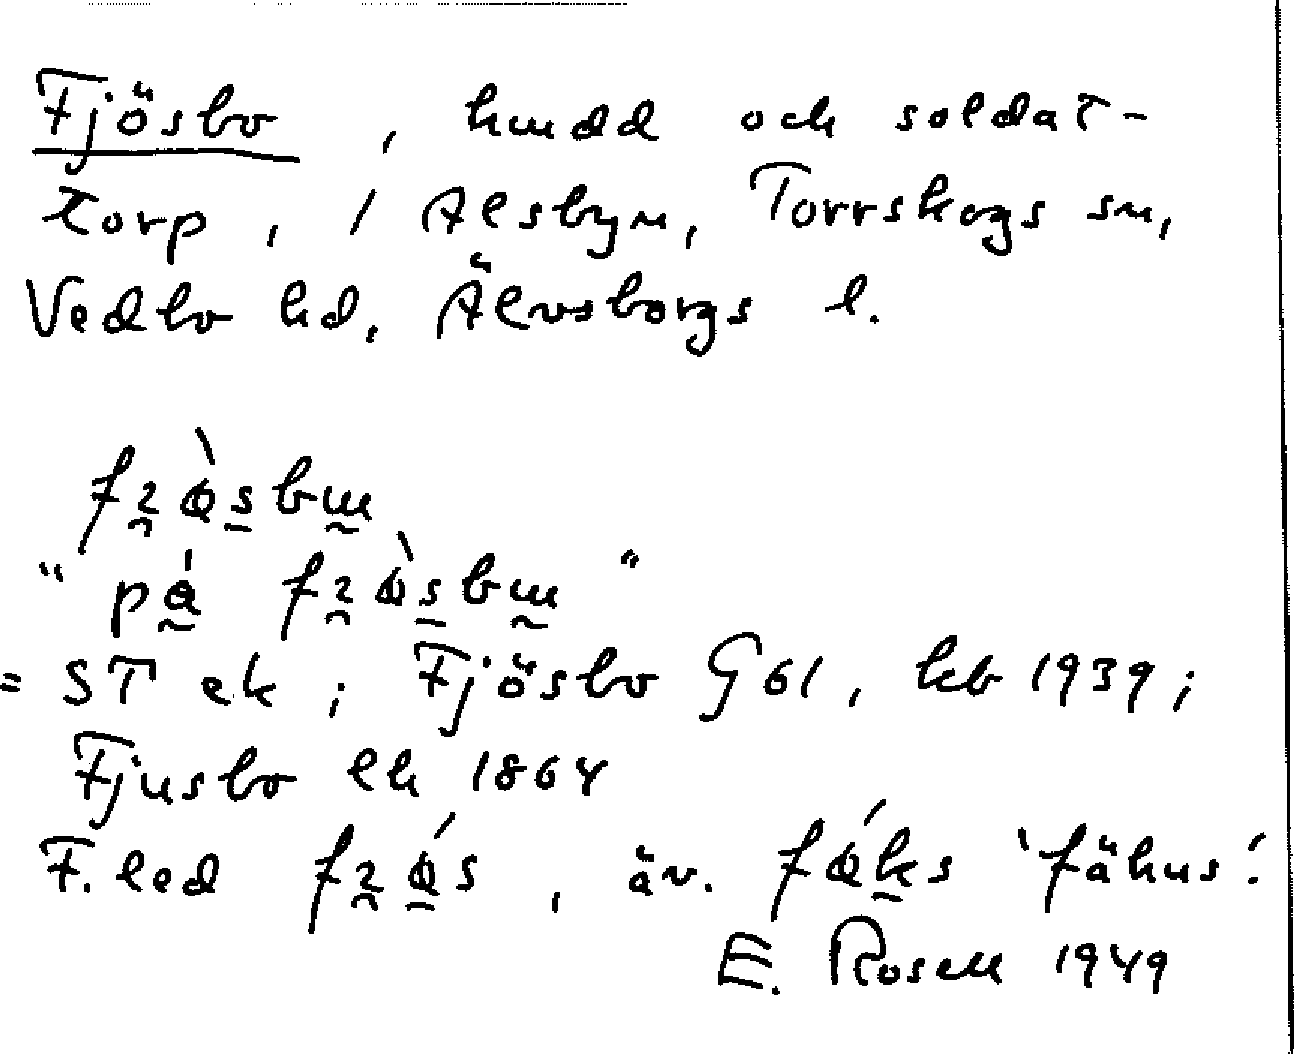 Fjösbo, hmdd och soldat-
torp, i Ålsbyn, Torrskogs sn,
Vedbo hd, Älvsborgs l.
"på
= ST ek; Fjösbo G61, kb 1939;
Fjusbo ek 1864
F. led, äv. 'fähus'.
E. Rosell 1949